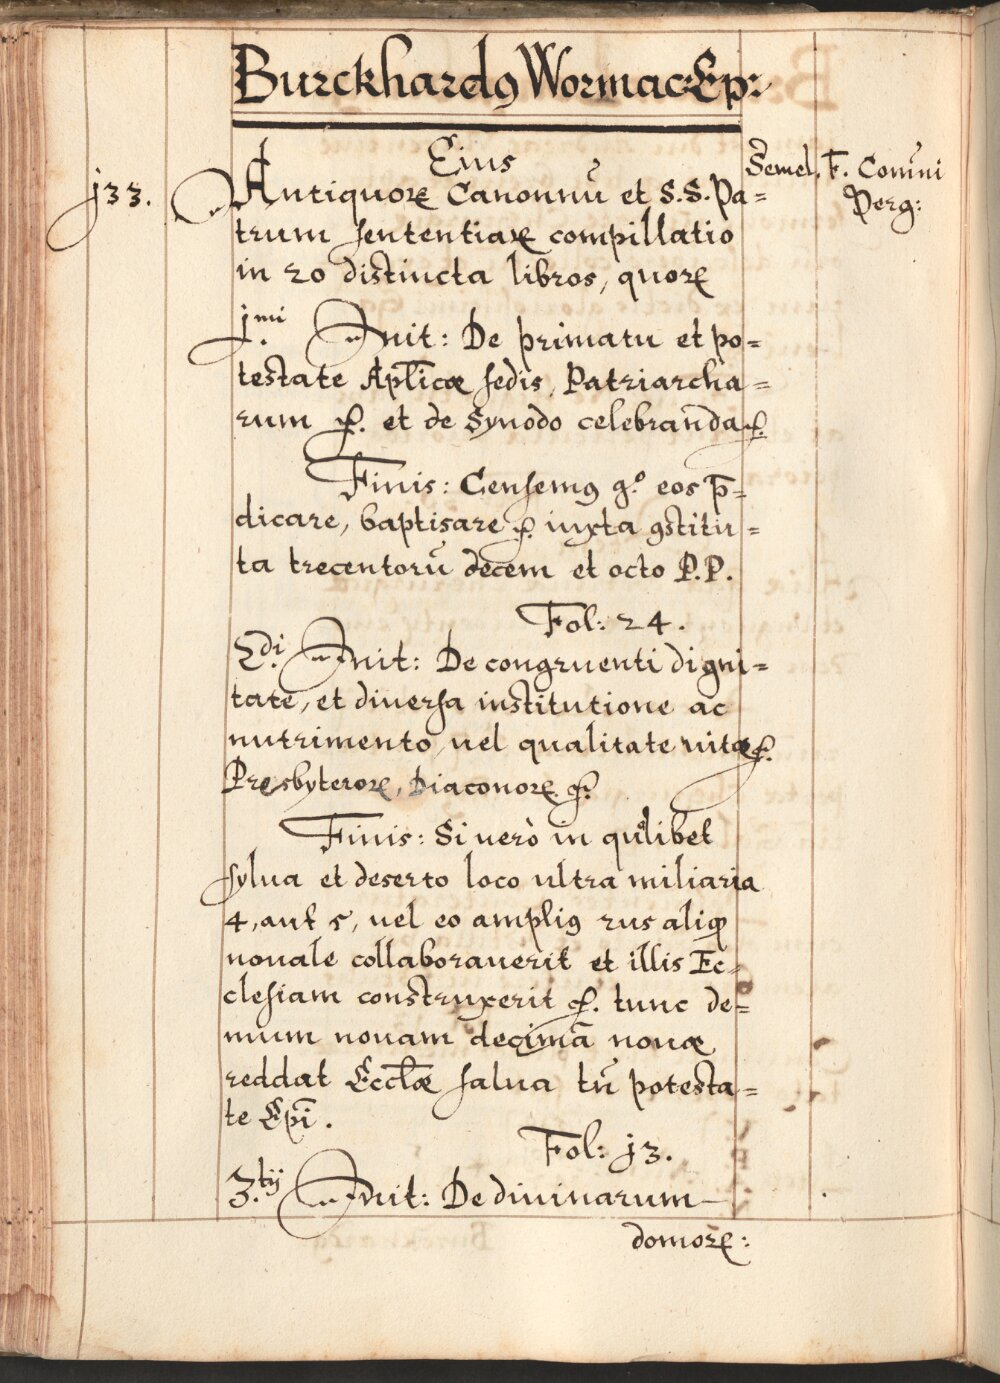 Burckhardꝰ Wormac: Ep:
Eius
133. Antiquorꝝ Canonnū et S.S. Pa= Semel. F. Com̄uni
trum sententiaꝝ compillatio Perg:
in 20 distincta libros, quorꝝ
1.mi Init: De primatu et po=
testate Apl̄icæ sedis, Patriarcha=
rum ꝑ. et de Synodo celebranda ꝑ.
Finis: Censemꝰ g.º eos p̄=
dicare, baptisare ꝑ. iuxta ꝯstitu=
ta trecentorū decem et octo P.P.
Fol: 24.
2.di Init: De congruenti digni=
tate, et diuersa institutione ac
nutrimento, uel qualitate uitæ ꝑ.
Presbyterorꝝ, Diaconorꝝ ꝑ.
Finis: Si uerò in qͦlibet
sylua et deserto loco ultra miliaria
4, aut 5, uel eo ampliꝰ rus aliqꝫ
nouale collaborauerit et illis Ec=
clesiam construxerit ꝑ. tunc de=
mum nouam decimā nouæ
reddat Eccl̄æ salua tn̄ potesta=
te Epī.
Fol: 13.
3.tij Init: De diuinarum
domorꝝ: